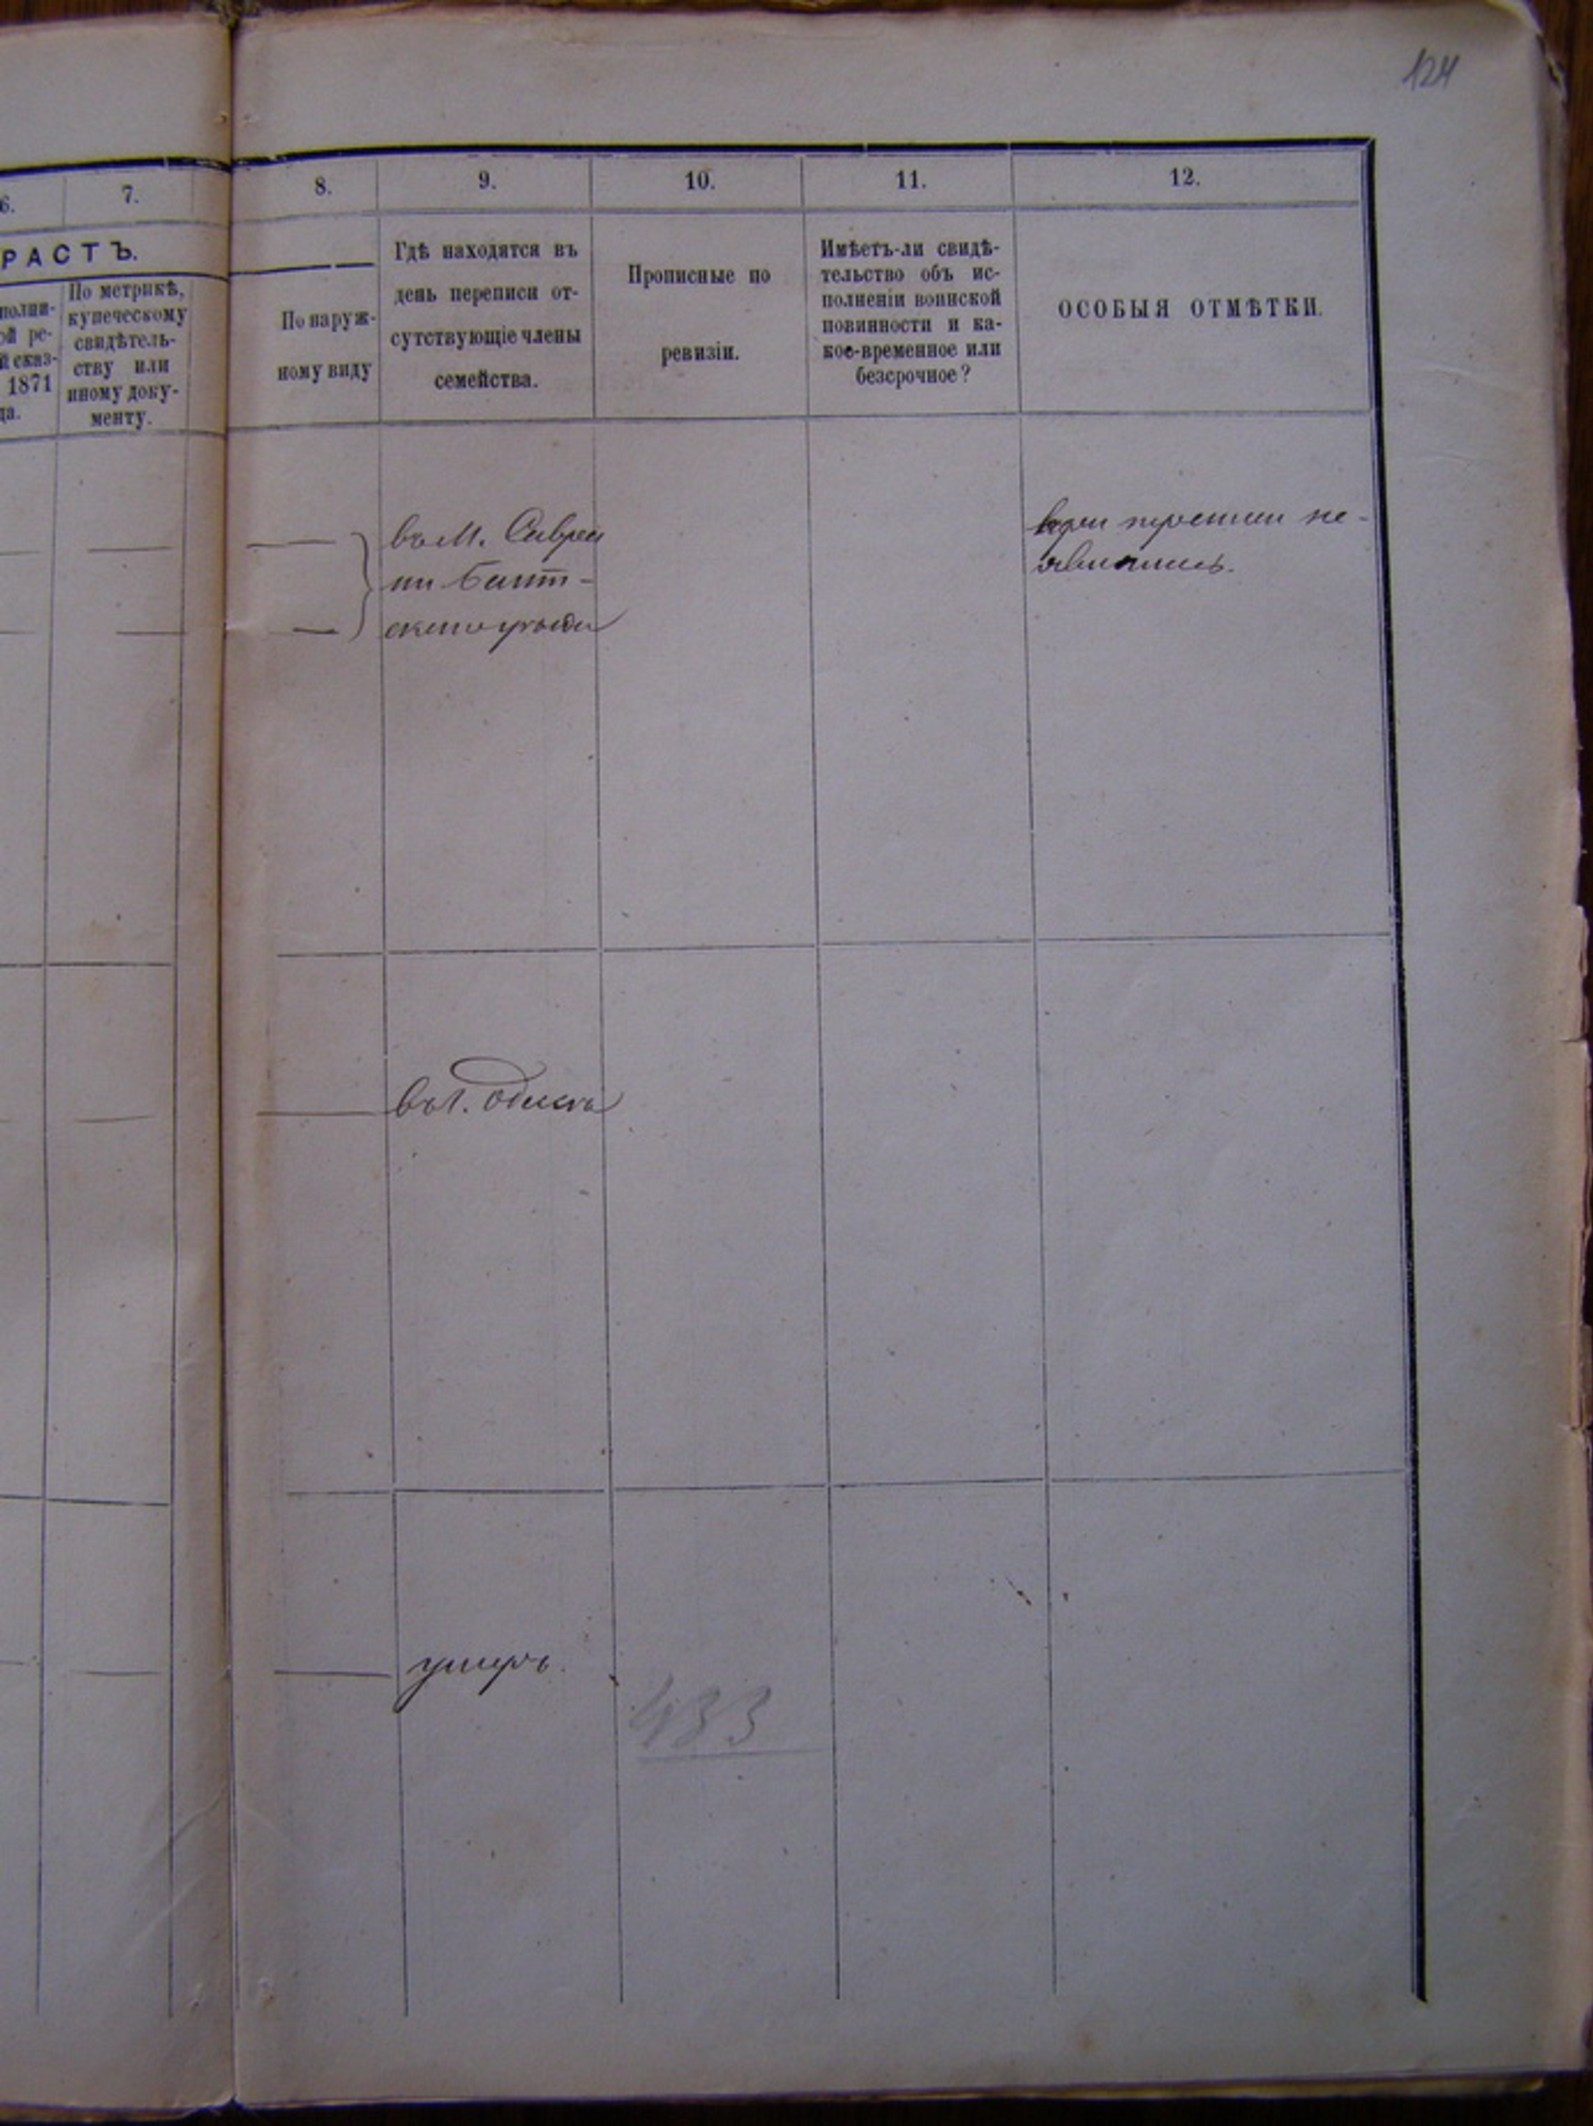 124
6.
7.
8.
9.
10.
11.
12.
РАСТЪ.
полни-
ой ре-
й сказ-
1871
да.
По метрикѣ,
купеческому
свидѣтель-
ству или
иному доку-
менту.
По наруж-
ному виду
Гдѣ находятся въ
день переписи от-
сутствующіе члены
семейства.
Прописные по
ревизіи.
Имѣетъ-ли свидѣ-
тельство объ ис-
полненіи воинской
повинности и ка-
кое-временное или
безсрочное?
ОСОБЫЯ ОТМѢТКИ.
въ М. Савра
ни Балт-
скаго уѣзда
при переписи не-
явились.
въ г. Одессѣ
умеръ.
433